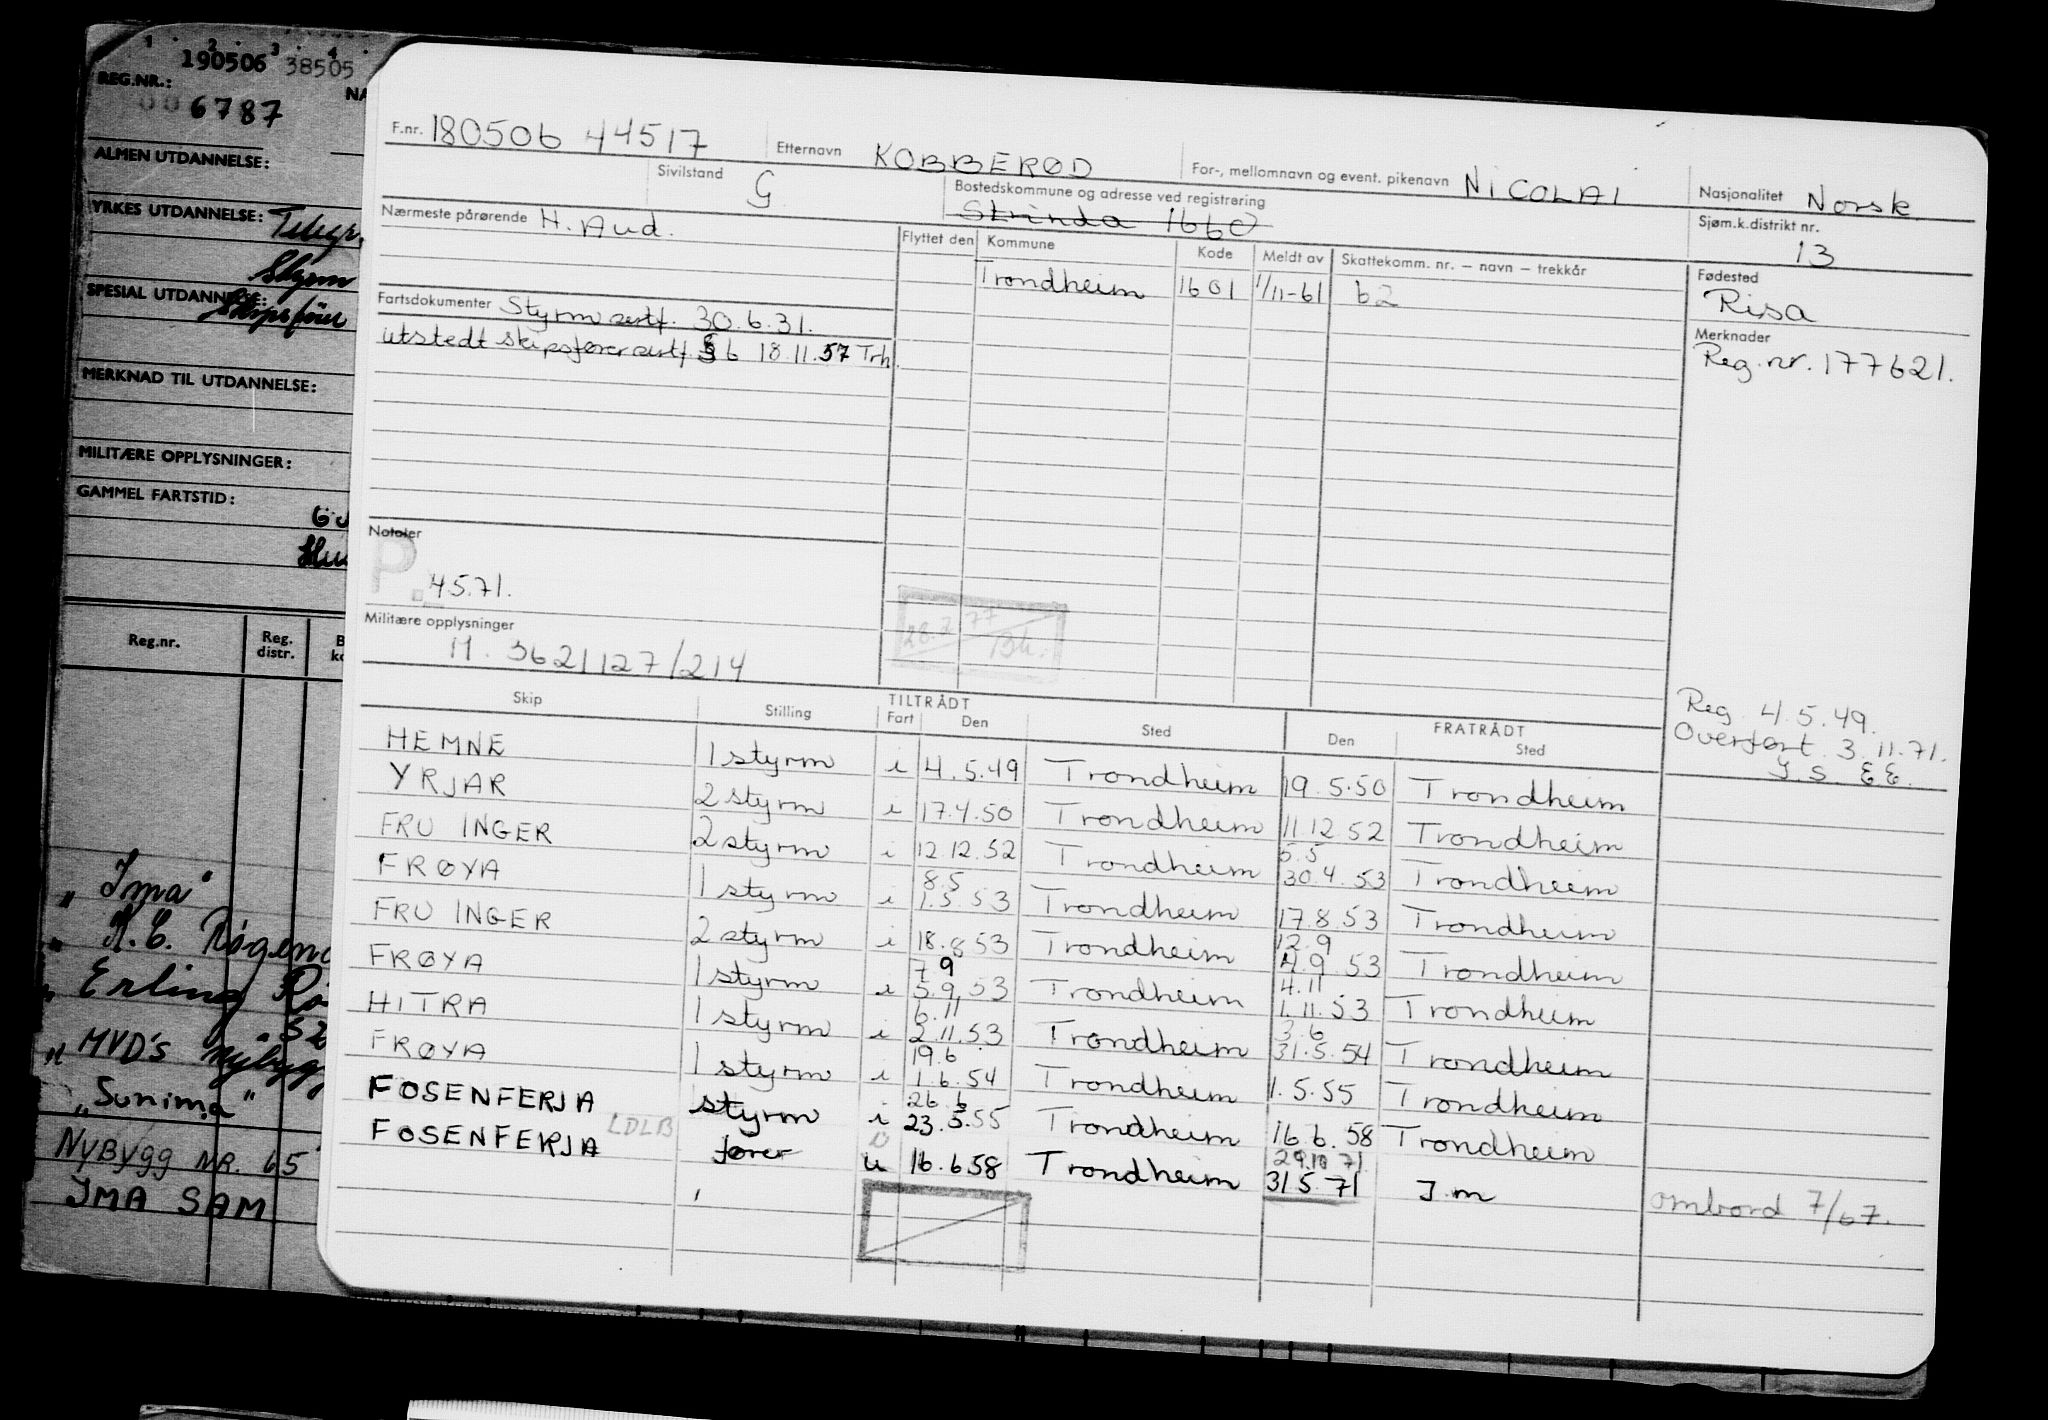 1 2 3 4
190506 38505
REG.NR.:
6787
ALMEN UTDANNELSE:
YRKES UTDANNELSE: Telegr.
Styrm
SPESIAL UTDANNELSE:
Skipsfører
MERKNAD TIL UTDANNELSE:
MILITÆRE OPPLYSNINGER:
GAMMEL FARTSTID:
Reg.nr. Reg. distr.
"Ima"
Erling
MVD's Nybygg
"Sunima"
NYBYGG NR. 65
IMA SAM
F.nr. 180506 44517 Etternavn KOBBERØD For-, mellomnavn og event. pikenavn NICOLAI Nasjonalitet Norsk
Sivilstand G Bostedskommune og adresse ved registrering Strinda 1660 Sjøm.k.distrikt nr. 13
Nærmeste pårørende H. Aud.
Flyttet den Kommune Kode Meldt av Skattekomm. nr. – navn – trekkår Fødested
Trondheim 1601 1/11-61 62 Risa
Fartsdokumenter Styrm sertf. 30.6.31.
utstedt skipsførersertf. 6 18.11.57 Trh.
Merknader
Reg.nr. 177621.
Notater
P.
4.5.71.
28.7.77
Militære opplysninger
M. 3621127/214
Reg. 4.5.49.
Overført. 3.11.71.
I.S. EE.
Skip Stilling TILTRÅDT Fart Den Sted FRATRÅDT Den Sted
HEMNE 1 styrm i 4.5.49 Trondheim 19.5.50 Trondheim
YRJAR 2 styrm i 17.4.50 Trondheim 11.12.52 Trondheim
FRU INGER 2 styrm i 12.12.52 Trondheim 5.5 30.4.53 Trondheim
FRØYA 1 styrm i 8.5 1.5.53 Trondheim 17.8.53 Trondheim
FRU INGER 2 styrm i 18.8.53 Trondheim 12.9 4.9.53 Trondheim
FRØYA 1 styrm i 7.9 5.9.53 Trondheim 4.11 1.11.53 Trondheim
HITRA 1 styrm i 6.11 2.11.53 Trondheim 3.6 31.5.54 Trondheim
FRØYA 1 styrm i 19.6 1.6.54 Trondheim 1.5.55 Trondheim
FOSENFERJA styrm i 26.6 23.5.55 Trondheim 16.6.58 Trondheim
FOSENFERJA LDLB fører u 16.6.58 Trondheim 29.10.71 31.5.71 I.m ombord 7/67.